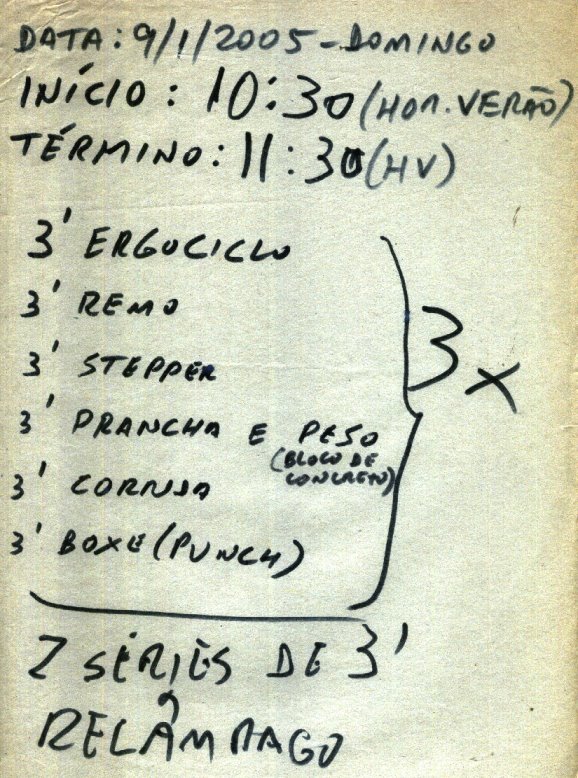 DATA: 9/1/2005 - DOMINGO
INÍCIO: 10:30 (HOR. VERÃO)
TÉRMINO: 11:30 (HV)
3' ERGOCICLO
3' REMO
3' STEPPER
3' PRANCHA E PESO
(BLOCO DE
CONCRETO)
3' CORRIDA
3' BOXE (PUNCH)
3x
2 SÉRIES DE 3'
RELÂMPAGO